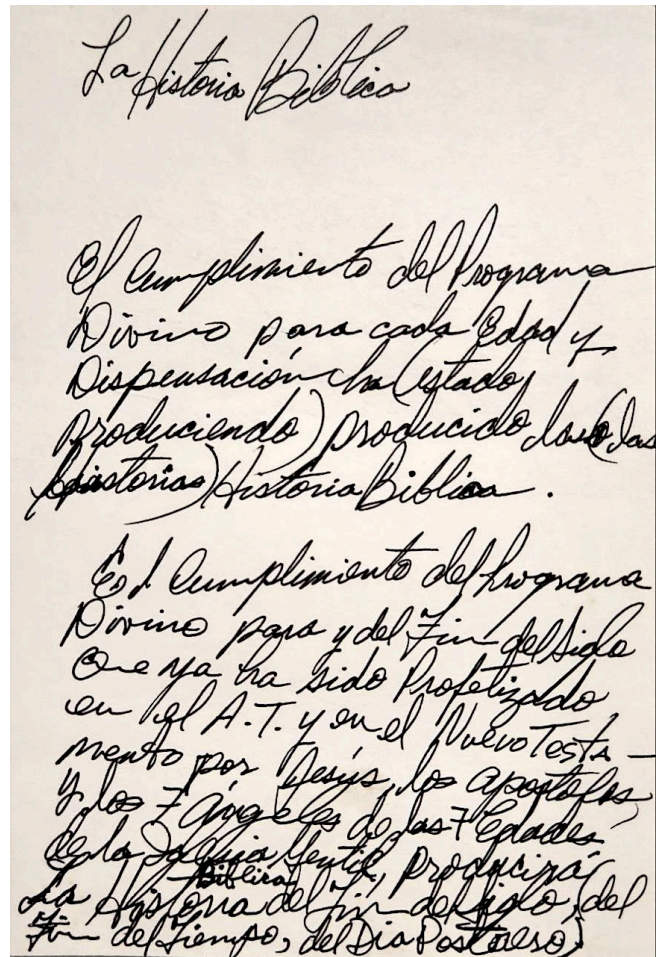 La Historia Bíblica
El Cumplimiento del Programa
Divino para cada Edad y
Dispensación ha (estado
produciendo) producido la (las
historias) Historia Bíblica.
El Cumplimiento del Programa
Divino para y del Fin del Siglo
Que ya ha sido Profetizado
en el A.T. y en el Nuevo Testa-
mento por Jesús, los apóstoles,
y los 7 Ángeles de las 7 Edades
de la Iglesia Gentil, producirá
La Historia Bíblica del Fin del Siglo, (del
Fin del Tiempo, del Dia Postrero)